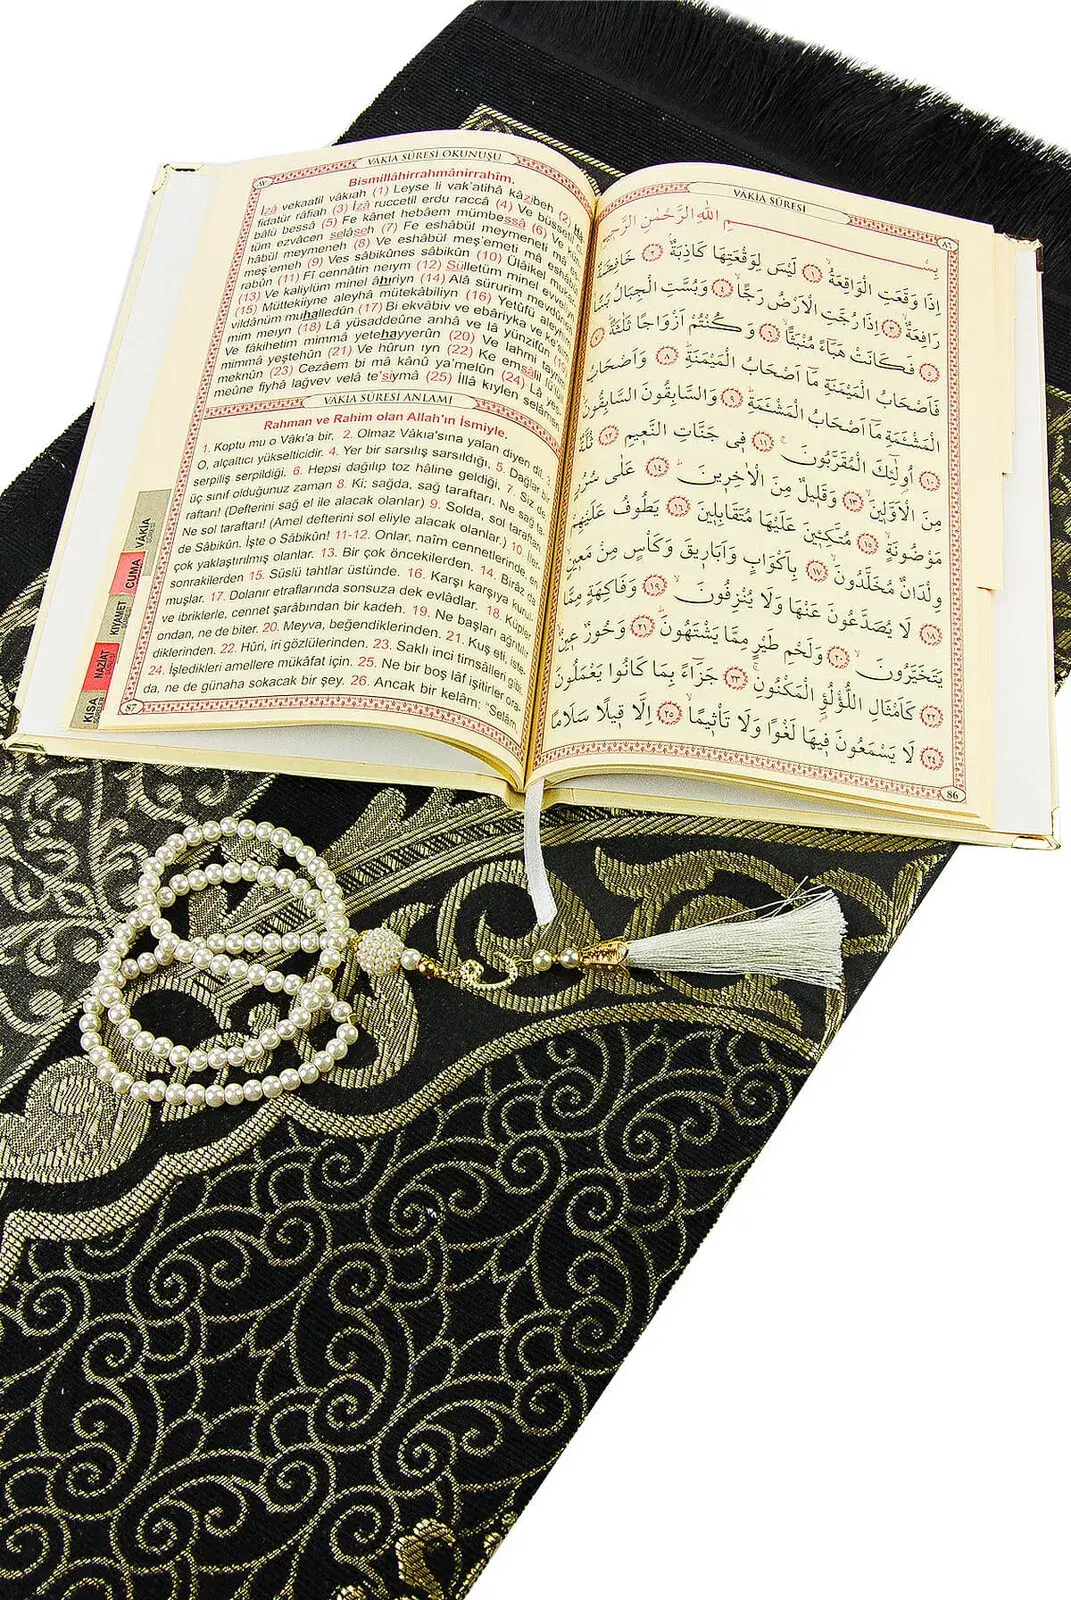 VAKIA SÛRESİ OKUNUŞU
Bismillâhirrahmânirrahîm.
İzâ vekaatil vâkıah (1) Leyse li vak'atihâ kâzibeh (2) Hâ
fidatür râfiah (3) İzâ ruccetil erdu raccâ (4) Ve büsseti
bâlü bessâ (5) Fe kânet hebâem mümbessâ (6) Ve
tüm ezvâcen selâseh (7) Fe eshâbül meymeneti mâ
hâbül meymeneh (8) Ve eshâbül meş'emeti mâ
meş'emeh (9) Ves sâbikûnes sâbikûn (10) Ülâikel
rabûn (11) Fî cennâtin neıym (12) Sülletüm minel evveliyn
(13) Ve kaliylüm minel âhıriyn (14) Alâ sürurim mevdûneh
(15) Müttekiiyne aleyhâ mütekâbiliyn (16) Yetûfü aleyhim
vildânüm muhalledûn (17) Bi ekvâbiv ve ebâriyka ve ke'sim
mim meıyn (18) Lâ yüsaddeûne anhâ ve lâ yünzifûn
Ve fâkihetim mimmâ yetehayyerûn (20) Ve lahmi tayrim
mimmâ yeştehûn (21) Ve hûrun ıyn (22) Ke emsâlil
meknûn (23) Cezâem bi mâ kânû ya'melûn (24) Lâ
meûne fiyhâ lağvev velâ te'siymâ (25) İllâ kıylen selâmen
VAKIA SÛRESİ ANLAMI
Rahman ve Rahim olan Allah'ın İsmiyle.
1. Koptu mu o Vâkı'a bir, 2. Olmaz Vâkıa'sına yalan diyen dil.
O, alçaltıcı yükselticidir. 4. Yer bir sarsılış sarsıldığı, 5. Dağlar bir
serpiliş serpildiği. 6. Hepsi dağılıp toz hâline geldiği. 7. Siz de
üç sınıf olduğunuz zaman 8. Ki; sağda, sağ tarafları. Ne sağ ta-
raftarı! (Defterini sağ el ile alacak olanlar) 9. Solda, sol tarafları.
Ne sol taraftarı! (Amel defterini sol eliyle alacak olanlar.) 10.
de Sâbikûn. İşte o Sâbikûn! 11-12. Onlar, naîm cennetlerinde, en
çok yaklaştırılmış olanlar. 13. Bir çok öncekilerden. 14. Biraz da
sonrakilerden 15. Süslü tahtlar üstünde. 16. Karşı karşıya kurul-
muşlar. 17. Dolanır etraflarında sonsuza dek evlâdlar. 18. Küpler
ve ibriklerle, cennet şarâbından bir kadeh. 19. Ne başları ağrıtılır
ondan, ne de biter. 20. Meyva, beğendiklerinden. 21. Kuş eti, iste-
diklerinden. 22. Hûri, iri gözlülerinden. 23. Saklı inci timsâlleri gibi.
24. İşledikleri amellere mükâfat için. 25. Ne bir boş lâf işitirler ora-
da, ne de günaha sokacak bir şey. 26. Ancak bir kelâm: "Selâm
87
VÂKİA
CUMA
KIYAMET
NAZİAT
KISA
VAKIA SÛRESİ
٨٦
بِسْمِ اللّٰهِ الرَّحْمٰنِ الرَّحِيمِ
اِذَا وَقَعَتِ الْوَاقِعَةُ ﴿١﴾ لَيْسَ لِوَقْعَتِهَا كَاذِبَةٌ ﴿٢﴾ خَافِضَةٌ
رَافِعَةٌ ﴿٣﴾ اِذَا رُجَّتِ الْاَرْضُ رَجًّا ﴿٤﴾ وَبُسَّتِ الْجِبَالُ بَسًّا
﴿٥﴾ فَكَانَتْ هَبَاءً مُنْبَثًّا ﴿٦﴾ وَكُنْتُمْ اَزْوَاجًا ثَلٰثَةً ﴿٧﴾
فَاَصْحَابُ الْمَيْمَنَةِ مَا اَصْحَابُ الْمَيْمَنَةِ ﴿٨﴾ وَاَصْحَابُ
الْمَشْئَمَةِ مَا اَصْحَابُ الْمَشْئَمَةِ ﴿٩﴾ وَالسَّابِقُونَ السَّابِقُونَ
﴿١٠﴾ اُولٰٓئِكَ الْمُقَرَّبُونَ ﴿١١﴾ فِي جَنَّاتِ النَّعِيمِ ﴿١٢﴾ ثُلَّةٌ
مِنَ الْاَوَّلِينَ ﴿١٣﴾ وَقَلِيلٌ مِنَ الْاٰخِرِينَ ﴿١٤﴾ عَلٰى سُرُرٍ
مَوْضُونَةٍ ﴿١٥﴾ مُتَّكِئِينَ عَلَيْهَا مُتَقَابِلِينَ ﴿١٦﴾ يَطُوفُ عَلَيْهِمْ
وِلْدَانٌ مُخَلَّدُونَ ﴿١٧﴾ بِاَكْوَابٍ وَاَبَارِيقَ وَكَأْسٍ مِنْ مَعِينٍ
﴿١٨﴾ لَا يُصَدَّعُونَ عَنْهَا وَلَا يُنْزِفُونَ ﴿١٩﴾ وَفَاكِهَةٍ مِمَّا
يَتَخَيَّرُونَ ﴿٢٠﴾ وَلَحْمِ طَيْرٍ مِمَّا يَشْتَهُونَ ﴿٢١﴾ وَحُورٌ عِينٌ
﴿٢٢﴾ كَاَمْثَالِ اللُّؤْلُؤِ الْمَكْنُونِ ﴿٢٣﴾ جَزَاءً بِمَا كَانُوا يَعْمَلُونَ
﴿٢٤﴾ لَا يَسْمَعُونَ فِيهَا لَغْوًا وَلَا تَأْثِيمًا ﴿٢٥﴾ اِلَّا قِيلًا سَلَامًا
86